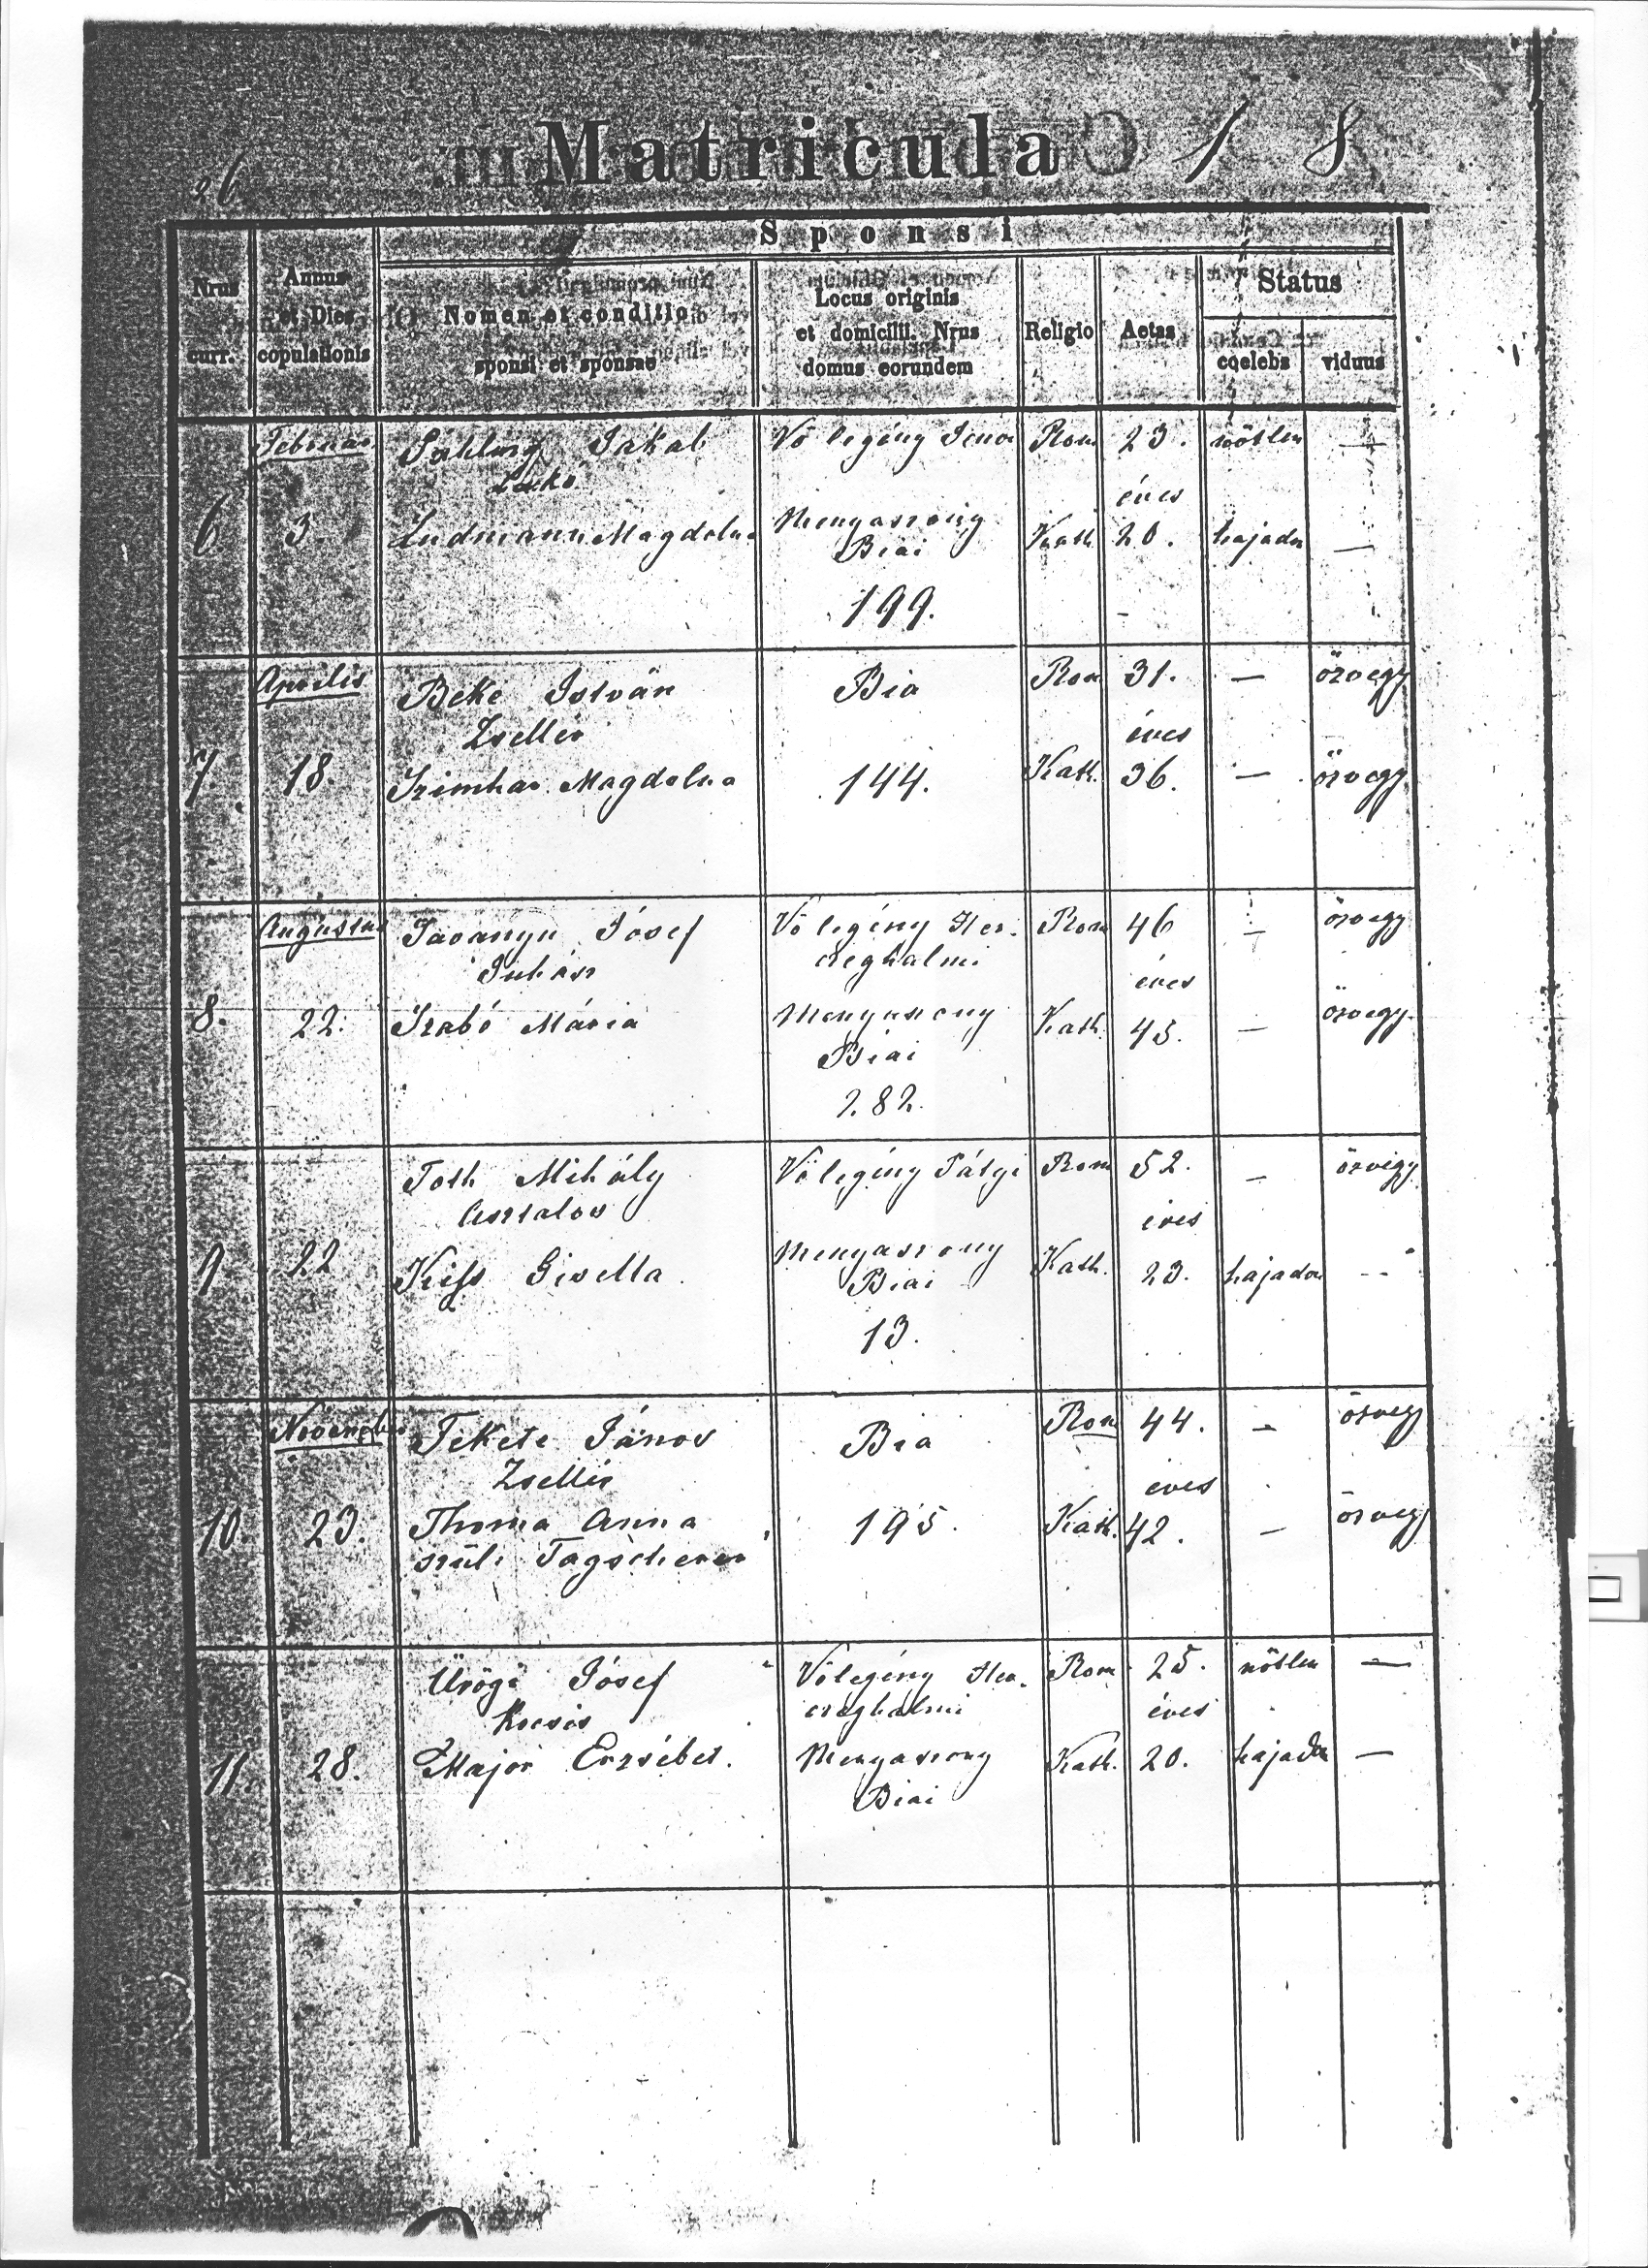 26
Matricula
1 8
Sponsi
Nrus curr.
Annus et Dies copulationis
Nomen et conditio sponsi et sponsae
Locus originis et domicilii. Nrus domus eorundem
Religio
Aetas
Status
coelebs
viduus
Február Jakab Vőlegény Rom 23. nőtlen —
éves
6 3. Ludmann Magdolna Menyasszony Kath 20. hajadon —
Biai
199.
Április Beke István Bia Rom 31. — özvegy
Zsellér éves
7. 18. Magdolna 144. Kath. 36. — özvegy
Augustus József Vőlegény Her- Rom 46 — özvegy
Juhász czeghalmi éves
8. 22. Szabó Mária Menyasszony Kath. 45. — özvegy.
Biai
282.
Toth Mihály Vőlegény Pátyi Rom 52. — özvegy
Asztalos éves
9 22 Kiss Gisella. Menyasszony Kath. 23. hajadon --
Biai
13.
November Fekete János Bia Rom 44. — özvegy
Zsellér éves
10. 23. Thoma Anna 195. Kath. 42. — özvegy
szül:
Ürögi József Vőlegény Her- Rom 25. nőtlen —
Kocsis czeghalmi éves
11. 28. Major Erzsébet. Menyasszony Kath. 20. hajadon —
Biai